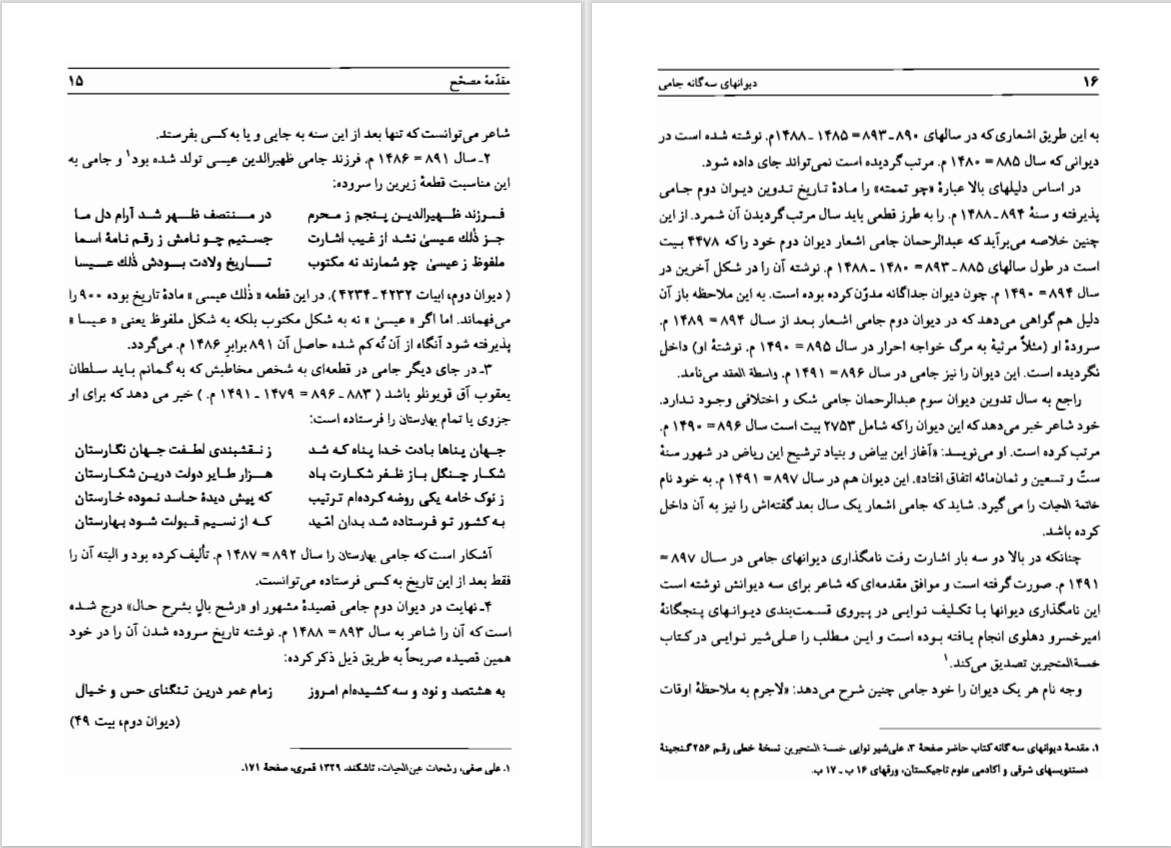 مقدّمهٔ مصحّح ۱۵
شاعر می‌توانست که تنها بعد از این سنه به جایی و یا به کسی بفرستد.
۲ـ سال ۸۹۱ = ۱۴۸۶ م. فرزند جامی ظهیرالدین عیسی تولد شده بود۱ و جامی به
این مناسبت قطعهٔ زیرین را سروده:
فـرزند ظـهیرالدیـن پـنجم ز مـحرم در مـنتصف ظـهر شـد آرام دل مـا
جـز ذٰلك عیسیٰ نشد از غیب اشارت جستیم چـو نامش ز رقـم نامهٔ اسما
ملفوظ ز عیسیٰ چو شمارند نه مکتوب تـاریخ ولادت بـودش ذٰلك عـیسا
( دیوان دوم، ابیات ۴۲۳۲ ـ ۴۲۳۴). در این قطعه « ذٰلك عیسی » مادهٔ تاریخ بوده ۹۰۰ را
می‌فهماند. اما اگر « عیسیٰ » نه به شکل مکتوب بلکه به شکل ملفوظ یعنی « عیسا »
پذیرفته شود آنگاه از آن نُه کم شده حاصل آن ۸۹۱ برابرِ ۱۴۸۶ م. می‌گردد.
۳ـ در جای دیگر جامی در قطعه‌ای به شخص مخاطبش که به گمانم باید سلطان
یعقوب آق قویونلو باشد ( ۸۸۳ ـ ۸۹۶ = ۱۴۷۹ ـ ۱۴۹۱ م. ) خبر می دهد که برای او
جزوی یا تمام بهارستان را فرستاده است:
جـهان پـناها بـادت خـدا پـناه کـه شـد ز نـقشبندی لطـفت جـهان نگـارستان
شکـار چـنگل بـاز ظـفر شکـارت بـاد هـزار طـایر دولت دریـن شکـارستان
ز نوک خامه یکی روضه کرده‌ام ترتیب که پیش دیدهٔ حاسد نموده خارستان
به کشور تو فرستاده شد بدان امّید کـه از نسـیم قـبولت شـود بـهارستان
آشکار است که جامی بهارستان را سال ۸۹۲ = ۱۴۸۷ م. تألیف کرده بود و البته آن را
فقط بعد از این تاریخ به کسی فرستاده می‌توانست.
۴ـ نهایت در دیوان دوم جامی قصیدهٔ مشهور او «رشح بالٍ بشرح حال» درج شده
است که آن را شاعر به سال ۸۹۳ = ۱۴۸۸ م. نوشته تاریخ سروده شدن آن را در خود
همین قصیده صریحاً به طریق ذیل ذکر کرده:
به هشتصد و نود و سه کشیده‌ام امروز زمام عمر درین تنگنای حس و خیال
(دیوان دوم، بیت ۴۹)
۱. علی صفی، رشحات عین‌الحیات، تاشکند، ۱۳۲۹ قمری، صفحهٔ ۱۷۱.
۱۶ دیوانهای سه‌گانه جامی
به این طریق اشعاری که در سالهای ۸۹۰ ـ ۸۹۳ = ۱۴۸۵ ـ ۱۴۸۸م. نوشته شده است در
دیوانی که سال ۸۸۵ = ۱۴۸۰ م. مرتب گردیده است نمی‌تواند جای داده شود.
در اساس دلیلهای بالا عبارهٔ «چو تممته» را مادهٔ تاریخ تدوین دیوان دوم جامی
پذیرفته و سنهٔ ۸۹۴ ـ ۱۴۸۸ م. را به طرز قطعی باید سال مرتب‌گردیدن آن شمرد. از این
چنین خلاصه می‌برآید که عبدالرحمان جامی اشعار دیوان دوم خود را که ۴۴۷۸ بیت
است در طول سالهای ۸۸۵ ـ ۸۹۳ = ۱۴۸۰ ـ ۱۴۸۸ م. نوشته آن را در شکل آخرین در
سال ۸۹۴ = ۱۴۹۰ م. چون دیوان جداگانه مدوّن کرده بوده است. به این ملاحظه باز آن
دلیل هم گواهی می‌دهد که در دیوان دوم جامی اشعار بعد از سال ۸۹۴ = ۱۴۸۹ م.
سرودهٔ او (مثلاً مرثیهٔ به مرگ خواجه احرار در سال ۸۹۵ = ۱۴۹۰ م. نوشتهٔ او) داخل
نگردیده است. این دیوان را نیز جامی در سال ۸۹۶ = ۱۴۹۱ م. واسطة العقد می‌نامد.
راجع به سال تدوین دیوان سوم عبدالرحمان جامی شک و اختلافی وجـود نـدارد.
خود شاعر خبر می‌دهد که این دیوان را که شامل ۲۷۵۳ بیت است سال ۸۹۶ = ۱۴۹۰ م.
مرتب کرده است. او می‌نویسد: «آغاز این بیاض و بنیاد ترشیح این ریاض در شهور سنهٔ
ستّ و تسعین و ثمان‌مائه اتفاق افتاد». این دیوان هم در سال ۸۹۷ = ۱۴۹۱ م. به خود نام
خاتمة الحیات را می گیرد. شاید که جامی اشعار یک سال بعد گفته‌اش را نیز به آن داخل
کرده باشد.
چنانکه در بالا دو سه بار اشارت رفت نامگذاری دیوانهای جامی در سـال ۸۹۷ =
۱۴۹۱ م. صورت گرفته است و موافق مقدمه‌ای که شاعر برای سه دیوانش نوشته است
این نامگذاری دیوانها بـا تکـلیف نـوایـی در پـیروی قسـمت‌بندی دیـوانـهای پـنجگانهٔ
امیرخسرو دهلوی انجام یافته بوده است و ایـن مـطلب را عـلی‌شیر نـوایـی در کـتاب
خمسةالمتحیرین تصدیق می‌کند.۱
وجه نام هر یک دیوان را خود جامی چنین شرح می‌دهد: «لاجرم به ملاحظهٔ اوقات
۱. مقدمهٔ دیوانهای سه گانه کتاب حاضر صفحهٔ ۳. علی‌شیر نوایی خمسة المتحیرین نسخهٔ خطی رقـم ۲۵۶ گـنجینهٔ
دستنویسهای شرقی و اکادمی علوم تاجیکستان، ورقهای ۱۶ ب ـ ۱۷ ب.